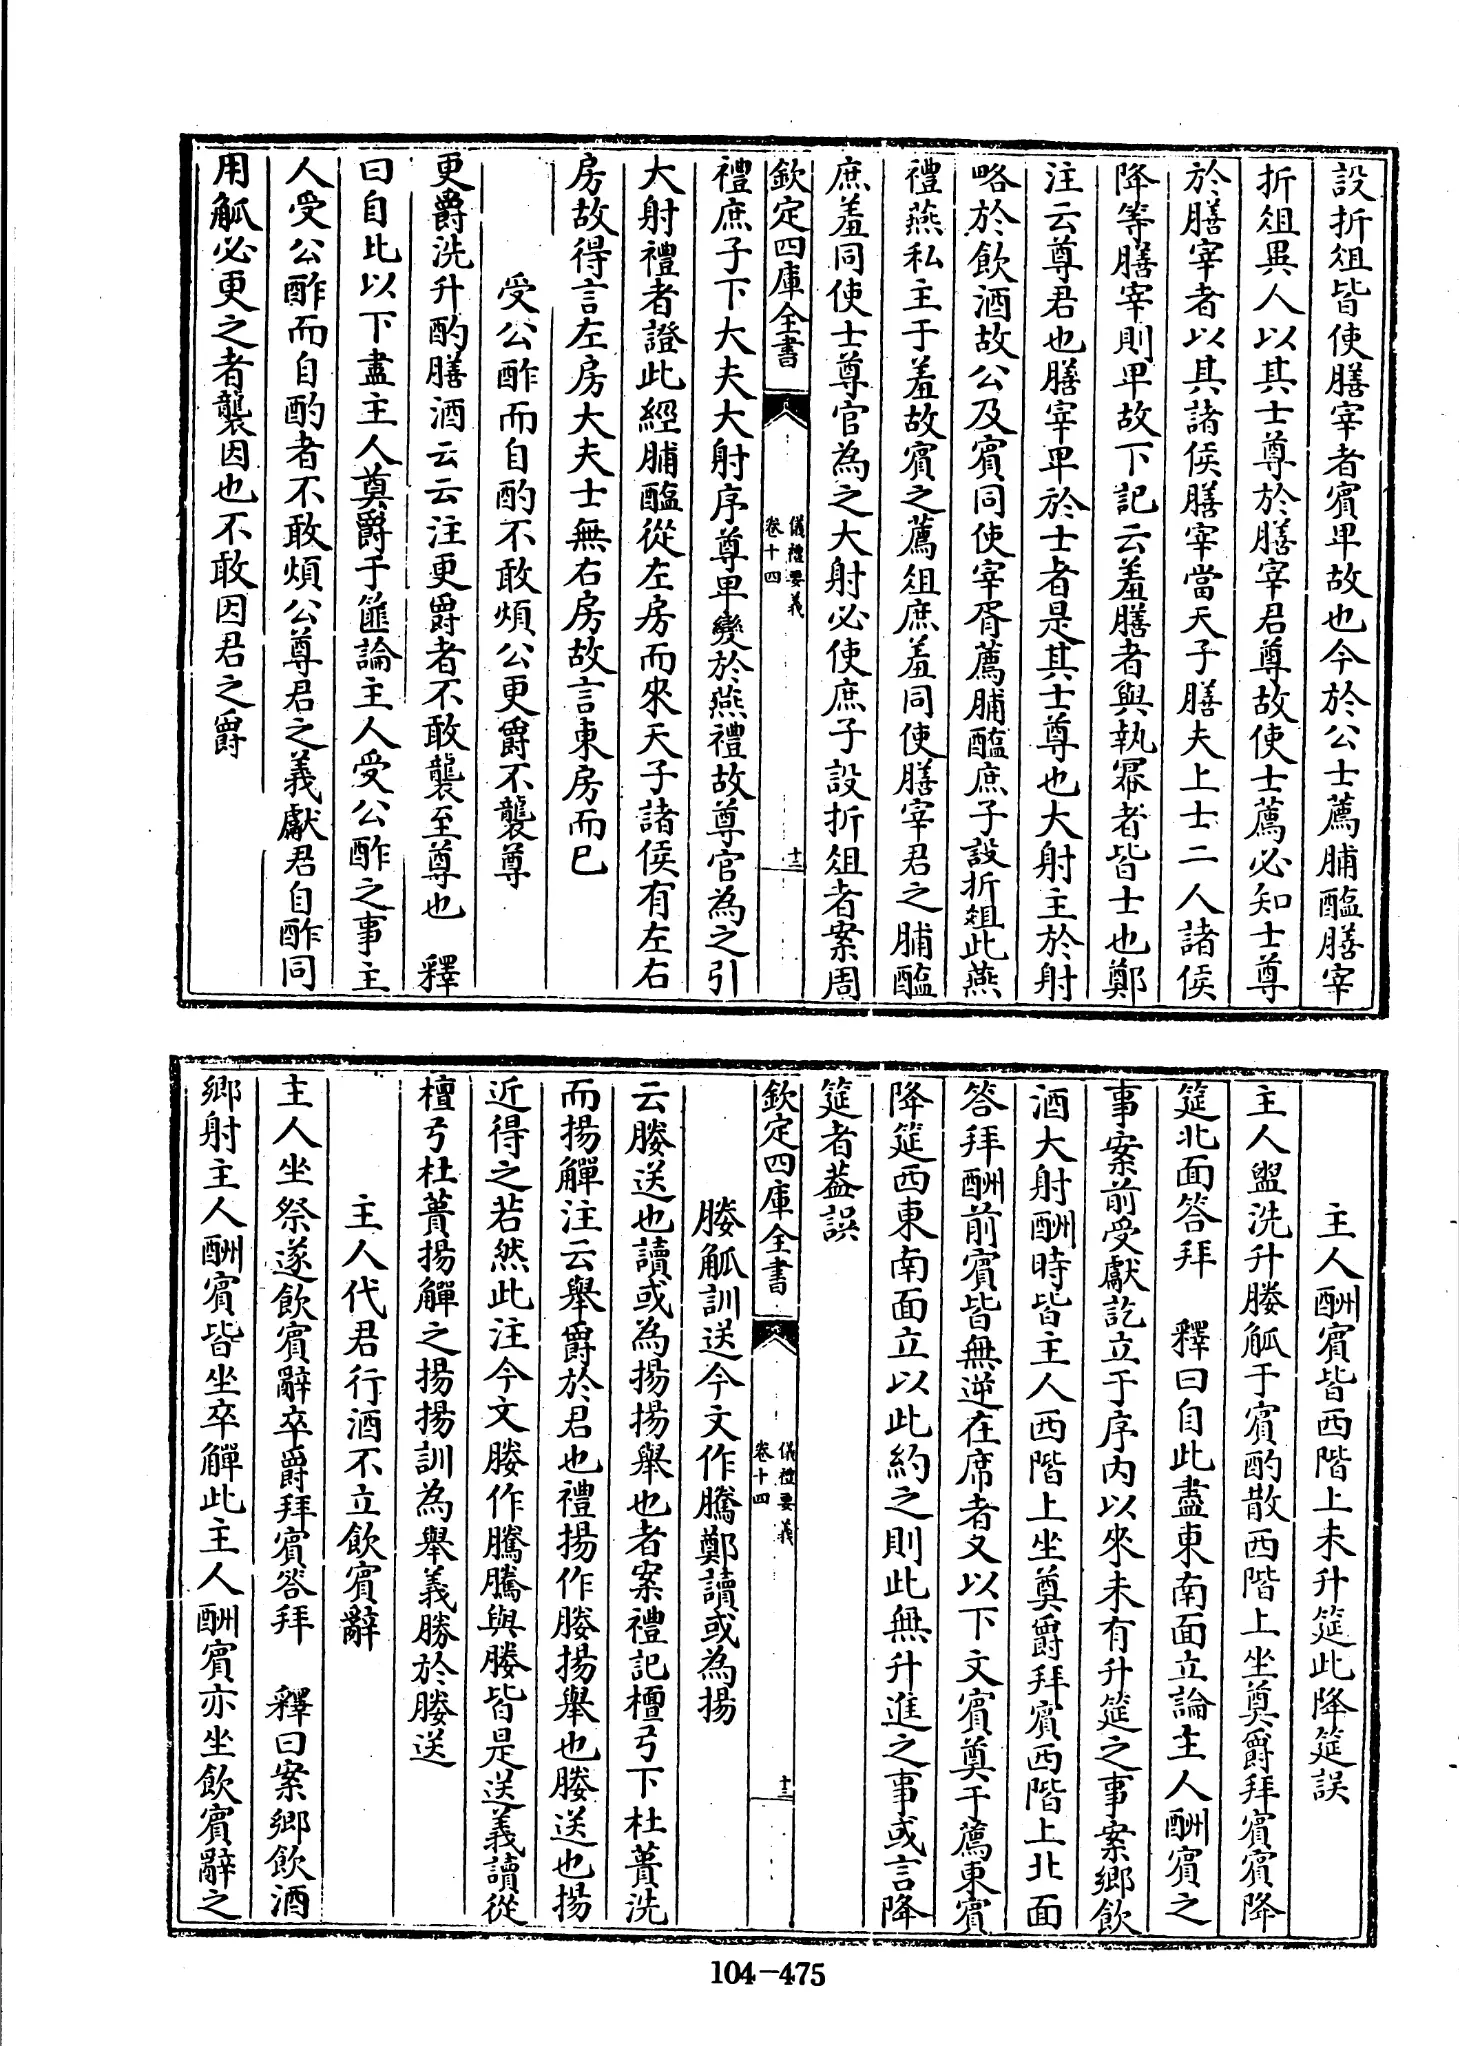 設折俎皆使膳宰者賓卑故也今於公士薦脯醢膳宰
折俎異人以其士尊於膳宰君尊故使士薦必知士尊
於膳宰者以其諸侯膳宰當天子膳夫上士二人諸侯
降等膳宰則卑故下記云羞膳者與執冪者皆士也鄭
注云尊君也膳宰卑於士者是其士尊也大射主於射
略於飲酒故公及賓同使宰胥薦脯醢庶子設折俎此燕
禮燕私主于羞故賓之薦俎庶羞同使膳宰君之脯醢
庶羞同使士尊官為之大射必使庶子設折俎者案周
欽定四庫全書
儀禮要義
卷十四
十二
禮庶子下大夫大射序尊卑變於燕禮故尊官為之引
大射禮者證此經脯醢從左房而來天子諸侯有左右
房故得言左房大夫士無右房故言東房而已
受公酢而自酌不敢煩公更爵不襲尊
更爵洗升酌膳酒云云注更爵者不敢襲至尊也　釋
曰自此以下盡主人奠爵于篚論主人受公酢之事主
人受公酢而自酌者不敢煩公尊君之義獻君自酢同
用觚必更之者襲因也不敢因君之爵
主人酬賓皆西階上未升筵此降筵誤
主人盥洗升媵觚于賓酌散西階上坐奠爵拜賓賓降
筵北面答拜　釋曰自此盡東南面立論主人酬賓之
事案前受獻訖立于序内以來未有升筵之事案鄉飲
酒大射酬時皆主人西階上坐奠爵拜賓西階上北面
答拜酬前賓皆無逆在席者又以下文賓奠于薦東賓
降筵西東南面立以此約之則此無升進之事或言降
筵者葢誤
欽定四庫全書
儀禮要義
卷十四
十三
媵觚訓送今文作騰鄭讀或為揚
云媵送也讀或為揚揚舉也者案禮記檀弓下杜蕢洗
而揚觶注云舉爵於君也禮揚作媵揚舉也媵送也揚
近得之若然此注今文媵作騰騰與媵皆是送義讀從
檀弓杜蕢揚觶之揚揚訓為舉義勝於媵送
主人代君行酒不立飲賓辭
主人坐祭遂飲賓辭卒爵拜賓答拜　釋曰案鄉飲酒
鄉射主人酬賓皆坐卒觶此主人酬賓亦坐飲賓辭之
104-475